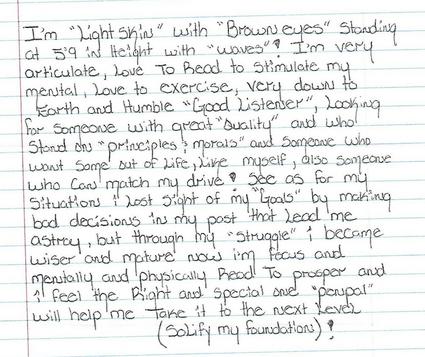 I'm "Light skin" with "Brown eyes" standing
at 5'9 in Height with "waves"! I'm very
articulate, Love To Read to Stimulate my
mental, Love to exercise, very down to
Earth and Humble "Good Listender", Looking
for someone with great "Quality" and who
Stand on "principles & morals" and Someone who
want Some out of Life, Like myself, also Someone
who can match my drive! See as for my
Situation i Lost Sight of my "Goals" by making
bad decisions in my past that Lead me
astray, but through my "Struggle" i became
wiser and mature now i'm focus and
mentally and physically Read To prosper and
i feel the Right and Special one "penpal"
will help me Take it to the next Level
(Solify my foundations)!